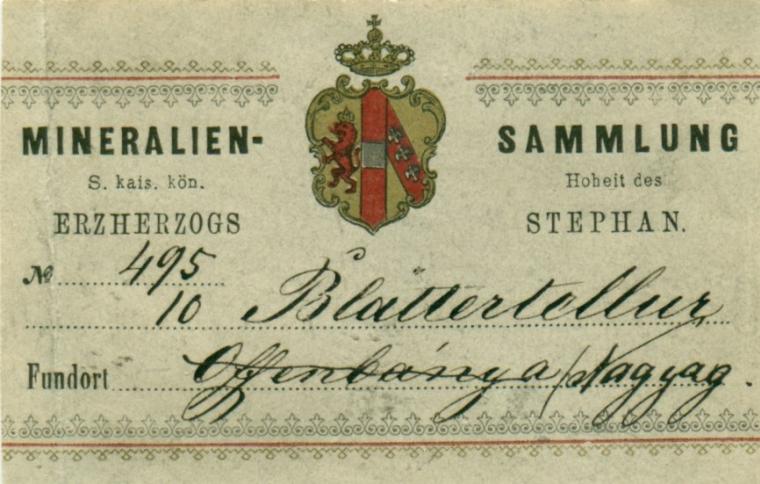 MINERALIEN- SAMMLUNG
S. kais. kön. Hoheit des
ERZHERZOGS STEPHAN.
№ 495
10 Blättertellur
Fundort Offenbánya / Nagyag.